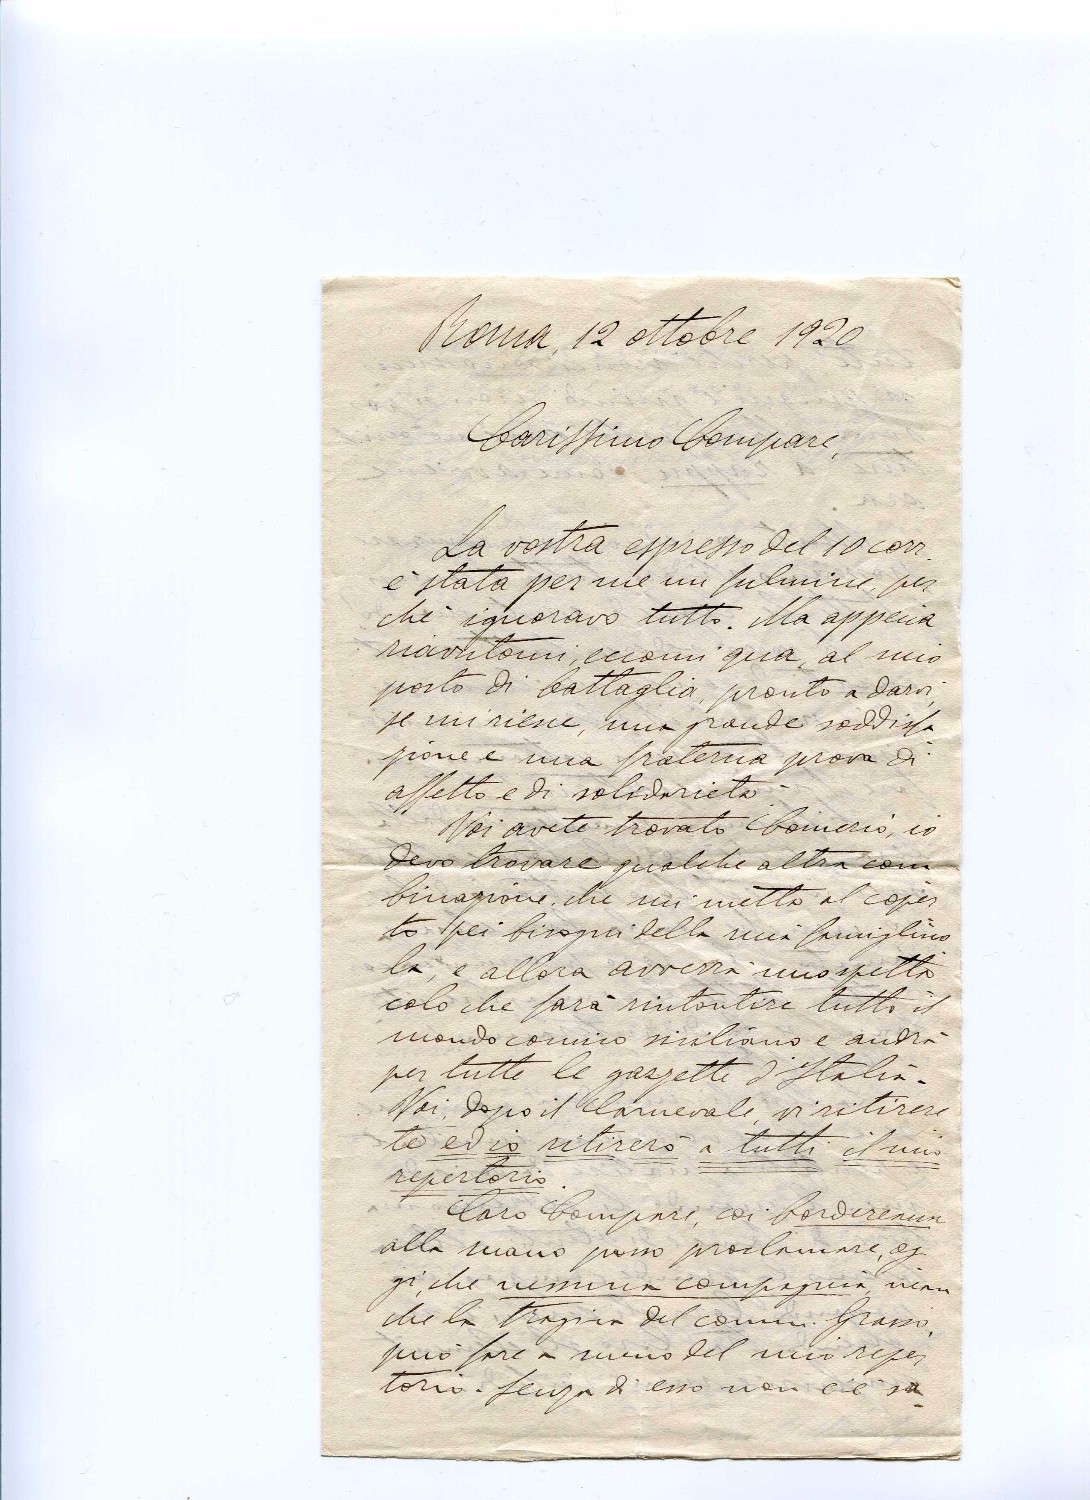 Roma, 12 ottobre 1920
Carissimo Compare,
La vostra espresso del 10 corr.
è stata per me un fulmine, per
chè ignoravo tutto. Ma appena
riavutomi, eccomi qua, al mio
posto di battaglia, pronto a darvi,
se mi riesce, una grande soddisfa
zione e una fraterna prova di
affetto e di solidarietà.
Voi avete trovato Comerio, io
devo trovare qualche altra com
binazione, che mi metta al coper
to pei bisogni della mia famigliuo
la, e allora avverrà uno spetta
colo che farà rintontire tutto il
mondo comico siciliano e andrà
per tutte le gazzette d'Italia.
Voi, dopo il Carnevale, vi ritirere
te ed io ritirerò a tutti il mio
repertorio.
Caro Compare, coi bordereaux
alla mano posso proclamare, og
gi, che nessuna compagnia, nean
che la tragica del comm. Grasso,
può fare a meno del mio reper
torio. Senza di esso non c'è sa